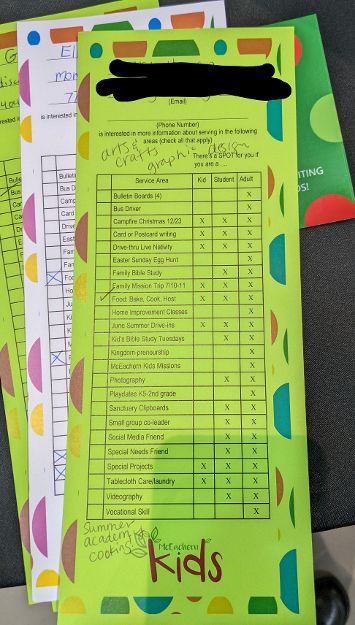 (Email)
(Phone Number)
is interested in more information about serving in the following
areas (check all that apply)
arts &
crafts
graphic design
There's a SPOT for you if
you are a ...
Service Area Kid Student Adult
Bulletin Boards (4) X
Bus Driver X
Campfire Christmas 12/23 X X X
Card or Postcard writing X X X
Drive-thru Live Nativity X X X
Easter Sunday Egg Hunt X
Family Bible Study X X
Family Mission Trip 7/10-11 X X X
Food: Bake, Cook, Host X X X
Home Improvement Classes X
June Summer Drive-ins X X X
Kid's Bible Study Tuesdays X X
Kingdom-preneurship X
McEachern Kids Missions X
Photography X X
Playdates K5-2nd grade X
Sanctuary Clipboards X X
Small group co-leader X X
Social Media Friend X X
Special Needs Friend X X
Special Projects X X X
Tablecloth Care/laundry X X X
Videography X X
Vocational Skill X
Summer
academy
cooking
McEachern
kids